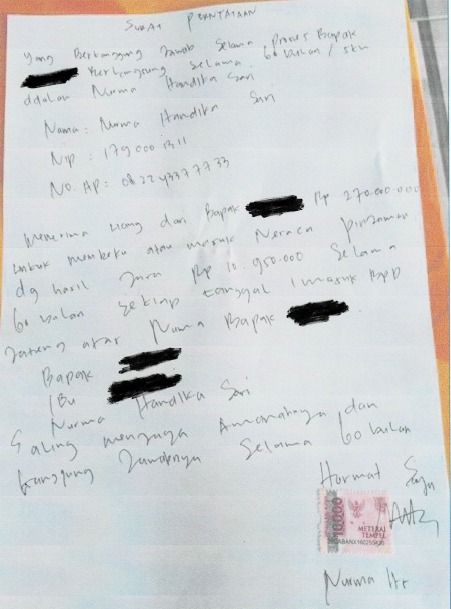 SURAT PERNYATAAN
Yang Bertanggung Jawab Selama Proses Bapak
Berlangsung Selama 60 bulan / 5th
adalah Nurma Handika Sari
Nama: Nurma Handika Sari
Nip : 179000 1311
No. HP: 082243377733
Menerima uang dari Bapak Rp 270.000.000
untuk membantu atau masuk Neraca pinjaman
dg hasil Jasa Rp 10.950.000 Selama
60 bulan Setiap tanggal 1 masuk BPD
Jateng atas Nama Bapak
Bapak
Ibu
Nurma Handika Sari
Saling menjaga Amanahnya dan
tanggung Jawabnya Selama 60 bulan
Hormat Saya
10000
METERAI
TEMPEL
Nurma Hr